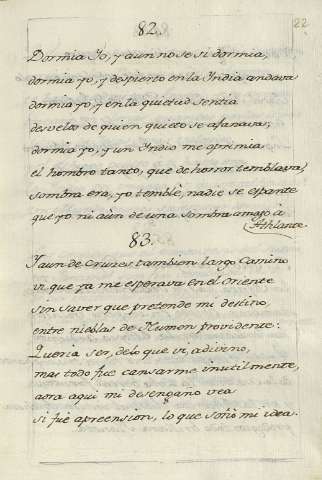 82.
22
Dormia Yo, y aun no se si dormia,
dormia yo, y despierto en la India andava
dormia yo, y en la quietud sentia
desvelos de quien quieto se afanava;
dormia yo, y un Indio me oprimia
el hombro tanto, que de horror temblava,
sombra era, yo temblè, nadie se espante
que yo ni aùn de una sombra amago à
Athlante.
83.
Y aun de Cruzes tambien largo Camino
vi que ya me esperava en el oriente
sin saver que pretende mi destino
entre nieblas de Numen providente:
Queria ser, delo que vi, adivino,
mas todo fuè cansarme inutilmente,
aora aqui mi desengano vea
si fuè apreension, lo que soñò mi idea.